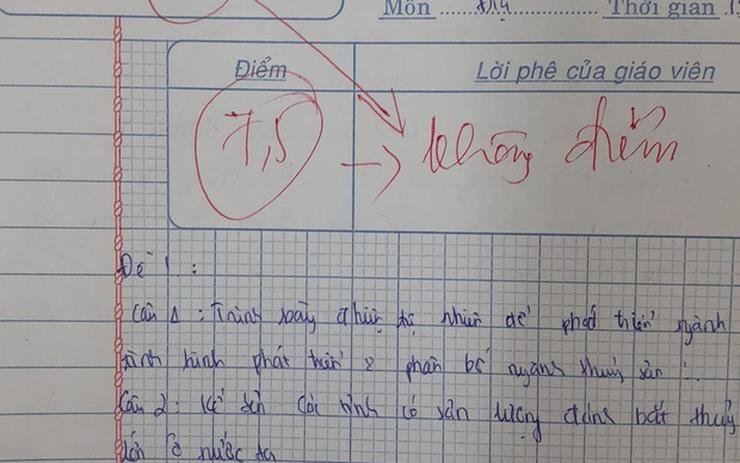 Môn ........ Địa ................ Thời gian .1
Điểm
Lời phê của giáo viên
7,5 → không điểm
Đề 1 :
Câu 1 : Trình bày đkiện tự nhiên để phát triển ngành
tình hình phát triển & phân bố ngành thuỷ sản :
Câu 2 : Kể tên các tỉnh có sản lượng đánh bắt thuỷ
lớn ở nước ta